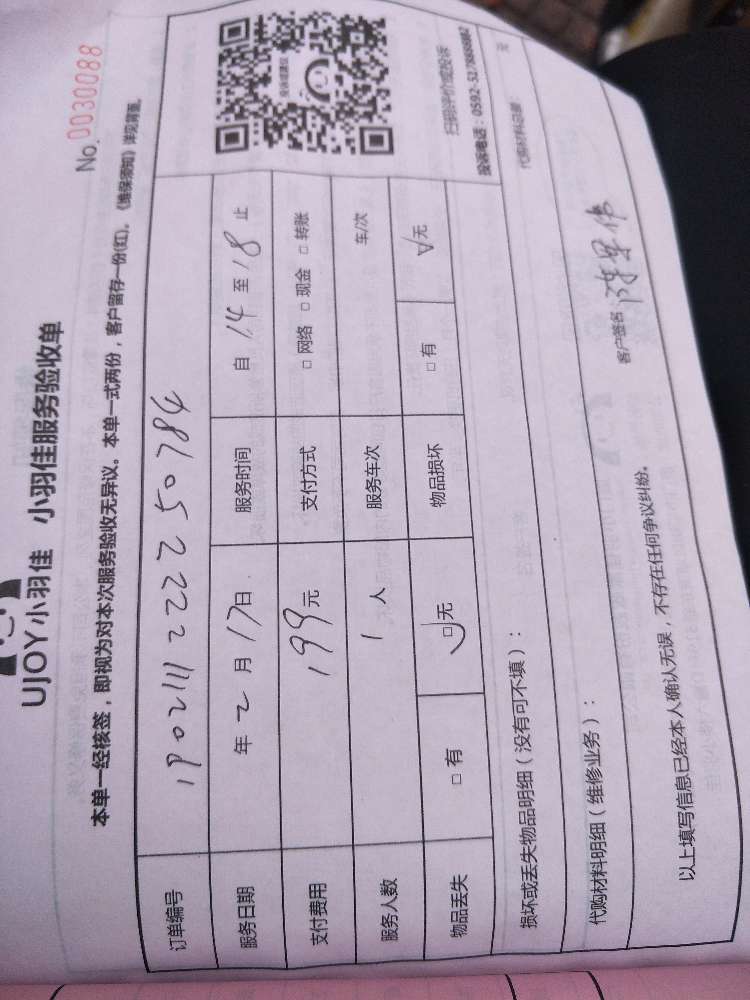 UJOY小羽佳 小羽佳服务验收单
No. 0030088
本单一经核签，即视为对本次服务验收无异议。本单一式两份，客户留存一份(红)。《维保须知》详见背面。
订单编号 190211122225078
服务日期 年 2 月 17 日 服务时间 自 14 至 18 止
支付费用 199 元 支付方式 □ 网络 □ 现金 □ 转账
服务人数 1 人 服务车次 车/次
物品丢失 □ 有 □ 无 物品损坏 □ 有 √ 无
投诉或建议
扫码评价或投诉
投诉电话：0592-
损坏或丢失物品明细（没有可不填）：
代购材料明细（维修业务）：
代购材料总额： 元
以上填写信息已经本人确认无误，不存在任何争议纠纷。
客户签名